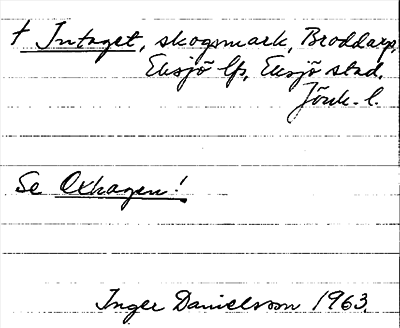 † Intaget, skogsmark, Broddarp,
Eksjö lfs, Eksjö stad.
Jönk. l.
Se Oxhagen!
Inger Danielsson 1963.